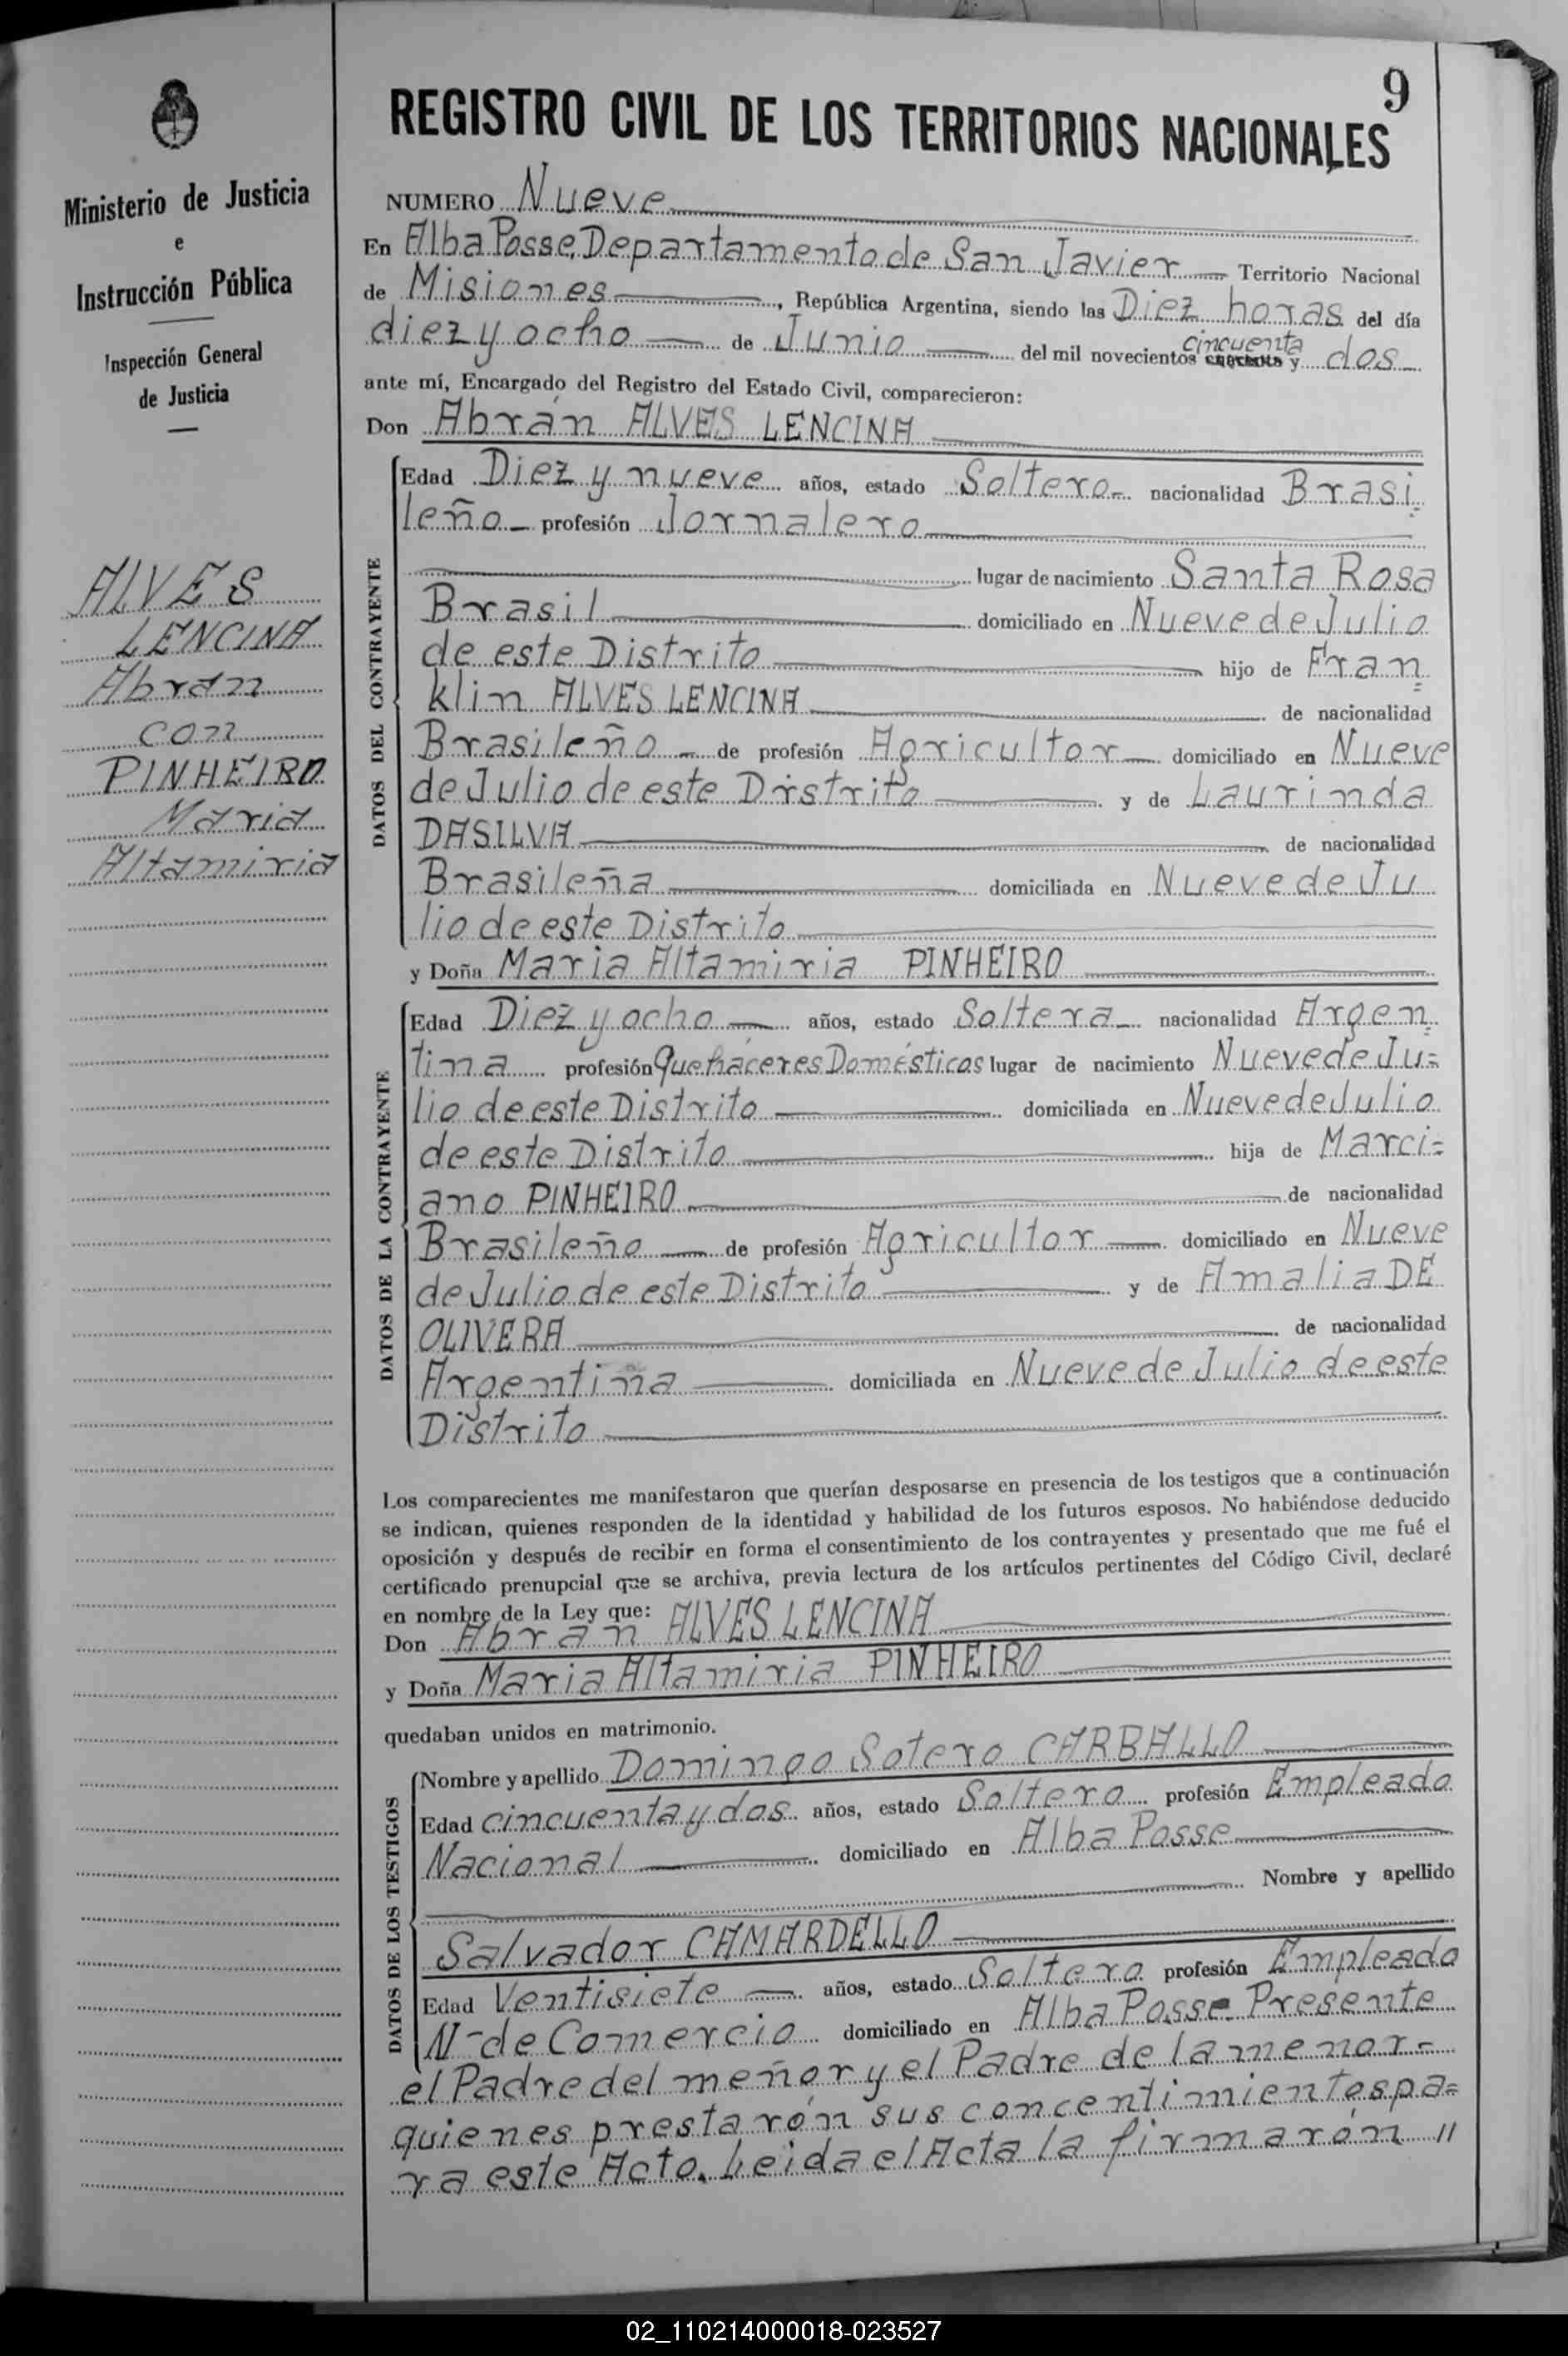 9
REGISTRO CIVIL DE LOS TERRITORIOS NACIONALES
Ministerio de Justicia
e
Instrucción Pública
Inspección General
de Justicia
ALVES
LENCINA
Abran
con
PINHEIRO
Maria
Altamiria
NUMERO Nueve
En Alba Posse, Departamento de San Javier Territorio Nacional
de Misiones, República Argentina, siendo las Diez horas del día
diez y ocho de Junio del mil novecientos cincuenta y dos
ante mí, Encargado del Registro del Estado Civil, comparecieron:
Don Abrán ALVES LENCINA
DATOS DEL CONTRAYENTE
Edad Diez y nueve años, estado Soltero nacionalidad Brasi
leño profesión Jornalero
lugar de nacimiento Santa Rosa
Brasil domiciliado en Nueve de Julio
de este Distrito hijo de Fran
klin ALVES LENCINA de nacionalidad
Brasileño de profesión Agricultor domiciliado en Nueve
de Julio de este Distrito y de Laurinda
DASILVA de nacionalidad
Brasileña domiciliada en Nueve de Ju
lio de este Distrito
y Doña Maria Altamiria PINHEIRO
DATOS DE LA CONTRAYENTE
Edad Diez y ocho años, estado Soltera nacionalidad Argen
tina profesión Quehaceres Domésticos lugar de nacimiento Nueve de Ju=
lio de este Distrito domiciliada en Nueve de Julio
de este Distrito hija de Marci=
ano PINHEIRO de nacionalidad
Brasileño de profesión Agricultor domiciliado en Nueve
de Julio de este Distrito y de Amalia DE
OLIVERA de nacionalidad
Argentina domiciliada en Nueve de Julio de este
Distrito
Los comparecientes me manifestaron que querían desposarse en presencia de los testigos que a continuación
se indican, quienes responden de la identidad y habilidad de los futuros esposos. No habiéndose deducido
oposición y después de recibir en forma el consentimiento de los contrayentes y presentado que me fué el
certificado prenupcial que se archiva, previa lectura de los artículos pertinentes del Código Civil, declaré
en nombre de la Ley que:
Don Abran ALVES LENCINA
y Doña Maria Altamiria PINHEIRO
quedaban unidos en matrimonio.
DATOS DE LOS TESTIGOS
Nombre y apellido Domingo Sotero CARBALLO
Edad cincuenta y dos años, estado Soltero profesión Empleado
Nacional domiciliado en Alba Posse
Nombre y apellido
Salvador CAMARDELLO
Edad Ventisiete años, estado Soltero profesión Empleado
N- de Comercio domiciliado en Alba Posse Presente
el Padre del meñor y el Padre de la menor-
quienes prestarón sus concentimientos pa=
ra este Acto. Leida el Acta la firmarón "
02_110214000018-023527